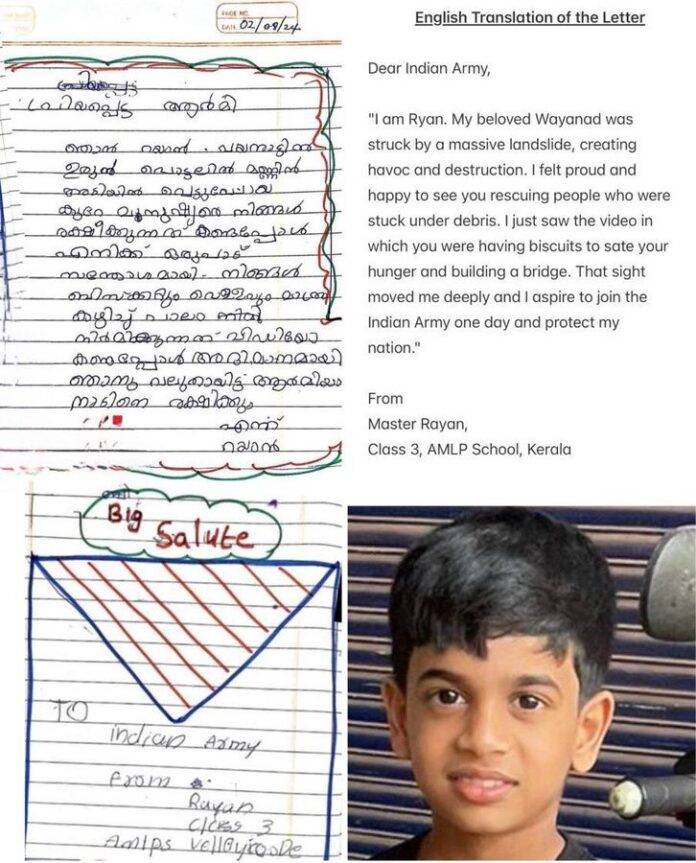 PAGE NO.
DATE 02/08/24
പ്രിയപ്പെട്ട ആർമി
ഞാൻ റയാൻ. വയനാട്ടിൽ
ഉരുൾ പൊട്ടലിൽ മണ്ണിൻ
അടിയിൽ പെട്ടുപോയ
കുറേ നിങ്ങൾ
രക്ഷിക്കുന്നത് കണ്ടപ്പോൾ
എനിക്ക് ഒരുപാട്
സന്തോഷമായി. നിങ്ങൾ
ബിസ്ക്കറ്റും വെള്ളവും മാത്രം
കഴിച്ച് പാലം
നിർമിക്കുന്നത് വിഡിയോ
കണ്ടപ്പോൾ അഭിമാനമായി
ഞാനും വലുതായിട്ട് ആർമിയാ
നാടിനെ രക്ഷിക്കും
എന്ന്
റയാൻ
English Translation of the Letter
Dear Indian Army,
"I am Ryan. My beloved Wayanad was
struck by a massive landslide, creating
havoc and destruction. I felt proud and
happy to see you rescuing people who were
stuck under debris. I just saw the video in
which you were having biscuits to sate your
hunger and building a bridge. That sight
moved me deeply and I aspire to join the
Indian Army one day and protect my
nation."
From
Master Rayan,
Class 3, AMLP School, Kerala
Big Salute
TO
indian Army
From
Rayan
class 3
Amlps